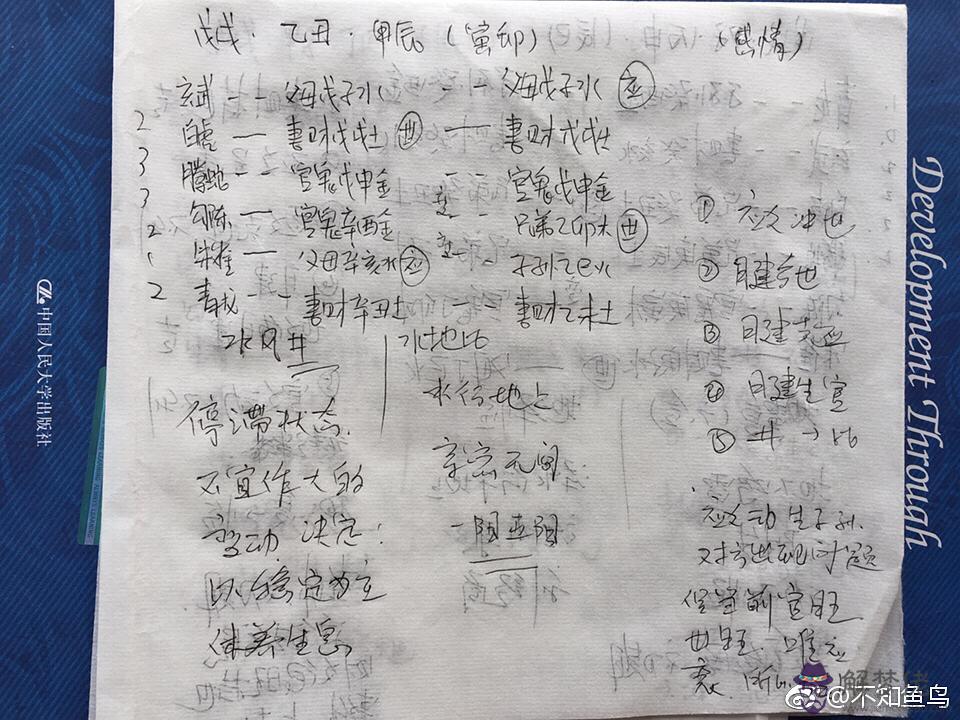 戊戌·乙丑·甲辰(寅卯) (感情)
玄武 -- 父母戊子水 -- 父母戊子水 应
2 白虎 — 妻财戊戌土 世 — 妻财戊戌土
3 螣蛇 -- 官鬼戊申金 -- 官鬼戊申金
3 勾陈 — 官鬼辛酉金 -- 兄弟乙卯木 世
2 朱雀 — 父母辛亥水 应 -- 子孙乙巳火
2 青龙 -- 妻财辛丑土 妻财乙未土
水风井 水地比
停滞状态.
不宜作大的
变动 决定:
以稳定为主
休养生息
水行地上
亲密无间
① 应爻冲世
② 日建合世
③ 日建克应
④ 日建生官
⑤ 井→比
应爻动生子孙.
对方出现问题
但当前官旺
世旺. 唯应
衰.
中国人民大学出版社
Development Through
解梦佬
@不知鱼鸟